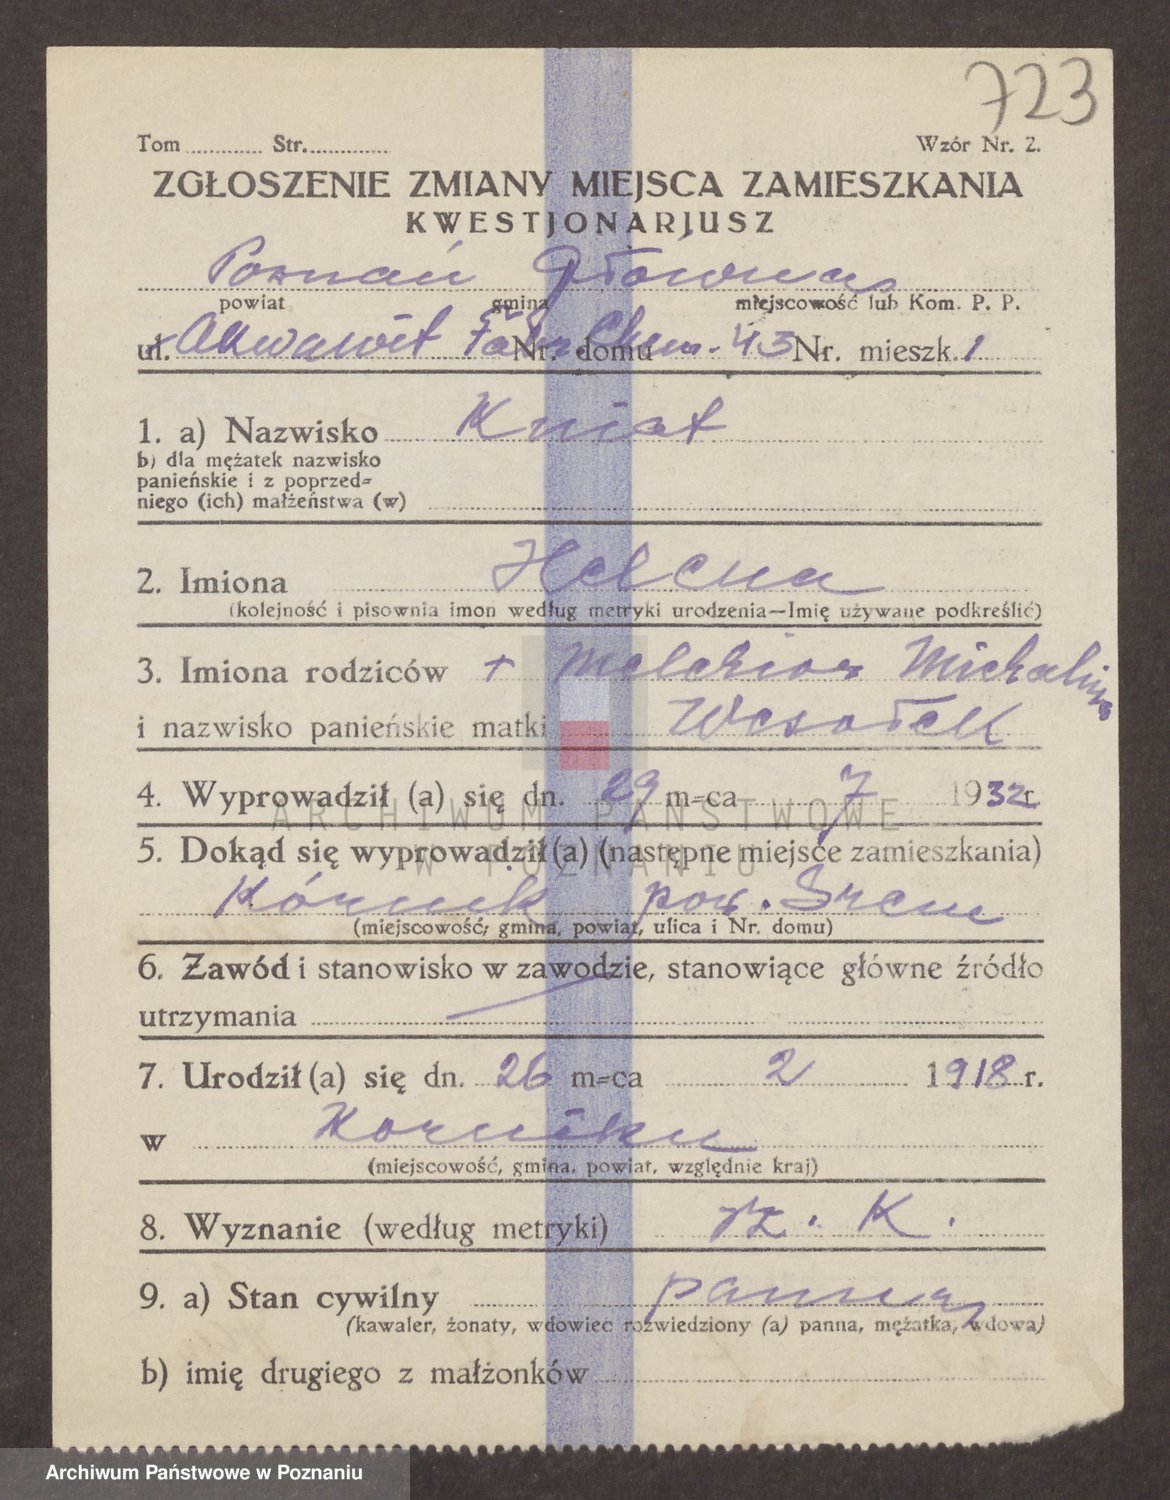 723
Tom ............ Str. ............ Wzór Nr. 2.
ZGŁOSZENIE ZMIANY MIEJSCA ZAMIESZKANIA
KWESTJONARJUSZ
Poznań Główna
powiat gmina miejscowość lub Kom. P. P.
ul. Akwawit Fabr. Chem. Nr. domu 43 Nr. mieszk. 1
1. a) Nazwisko Kniat
b) dla mężatek nazwisko
panieńskie i z poprzed=
niego (ich) małżeństwa (w)
2. Imiona Helena
(kolejność i pisownia imon według metryki urodzenia—Imię używane podkreślić)
3. Imiona rodziców + Melchior Michalina
i nazwisko panieńskie matki Wesołek
4. Wyprowadził (a) się dn. 29 m=ca 7 1932 r.
ARCHIWUM PAŃSTWOWE
5. Dokąd się wyprowadził(a) (następne miejsce zamieszkania)
W POZNANIU
Kórnik pow. Srem
(miejscowość, gmina, powiat, ulica i Nr. domu)
6. Zawód i stanowisko w zawodzie, stanowiące główne źródło
utrzymania
7. Urodził (a) się dn. 26 m=ca 2 1918 r.
w Korniku
(miejscowość, gmina, powiat, względnie kraj)
8. Wyznanie (według metryki) rz. K.
9. a) Stan cywilny panna
(kawaler, żonaty, wdowiec rozwiedziony (a) panna, mężatka, wdowa)
b) imię drugiego z małżonków
Archiwum Państwowe w Poznaniu